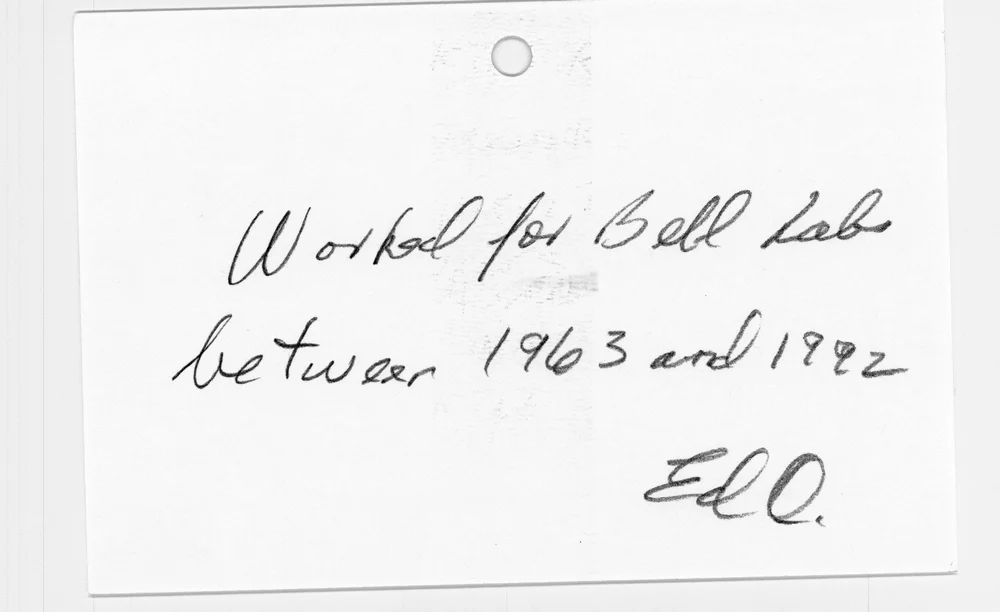 Worked for Bell Labs
between 1963 and 1992
Ed O.